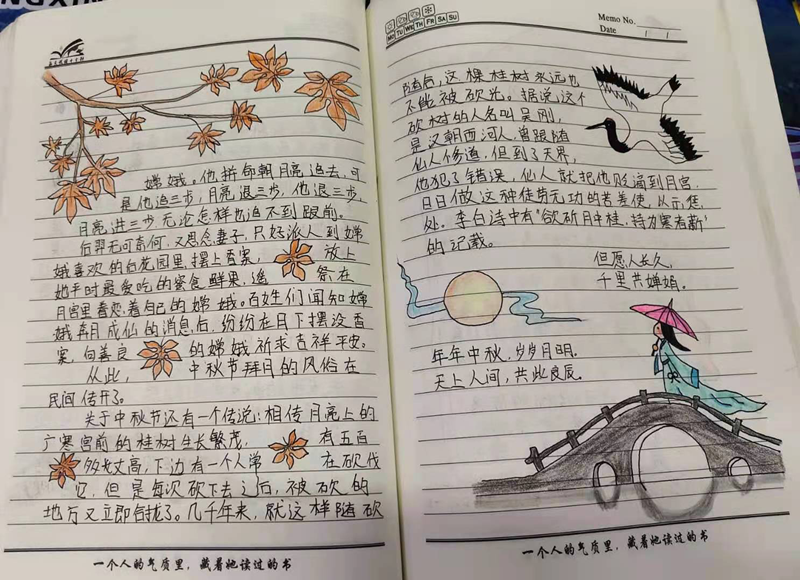 嫦娥。他拼命朝月亮追去,可
是他追三步,月亮退三步,他退三步,
月亮进三步无论怎样也追不到跟前。
后羿无可奈何,又思念妻子,只好派人到嫦
娥喜欢的后花园里,摆上香案, 放上
她平时最爱吃的蜜食鲜果,遥 祭在
月宫里眷恋着自己的嫦娥。百姓们闻知嫦
娥奔月成仙的消息后,纷纷在月下摆设香
案,向善良 的嫦娥祈求吉祥平安。
从此, 中秋节拜月的风俗在
民间传开了。
关于中秋节还有一个传说:相传月亮上的
广寒宫前的桂树生长繁茂, 有五百
多丈高,下边有一个人常 在砍伐
它,但是每次砍下去之后,被砍的
地方又立即合拢了。几千年来,就这样随砍
一个人的气质里,藏着她读过的书
Memo No.
MO TU WE TH FR SA SU
Date / /
随后,这棵桂树永远也
不能被砍光。据说这个
砍树的人名叫吴刚,
是汉朝西河人,曾跟随
仙人修道,但到了天界,
他犯了错误,仙人就把他贬谪到月宫,
日日做这种徒劳无功的苦差使,以示惩
处。李白诗中有“欲斫月中桂,持为寒者薪”
的记载。
但愿人长久,
千里共婵娟。
年年中秋,岁岁月明。
天上人间,共此良辰。
一个人的气质里,藏着她读过的书